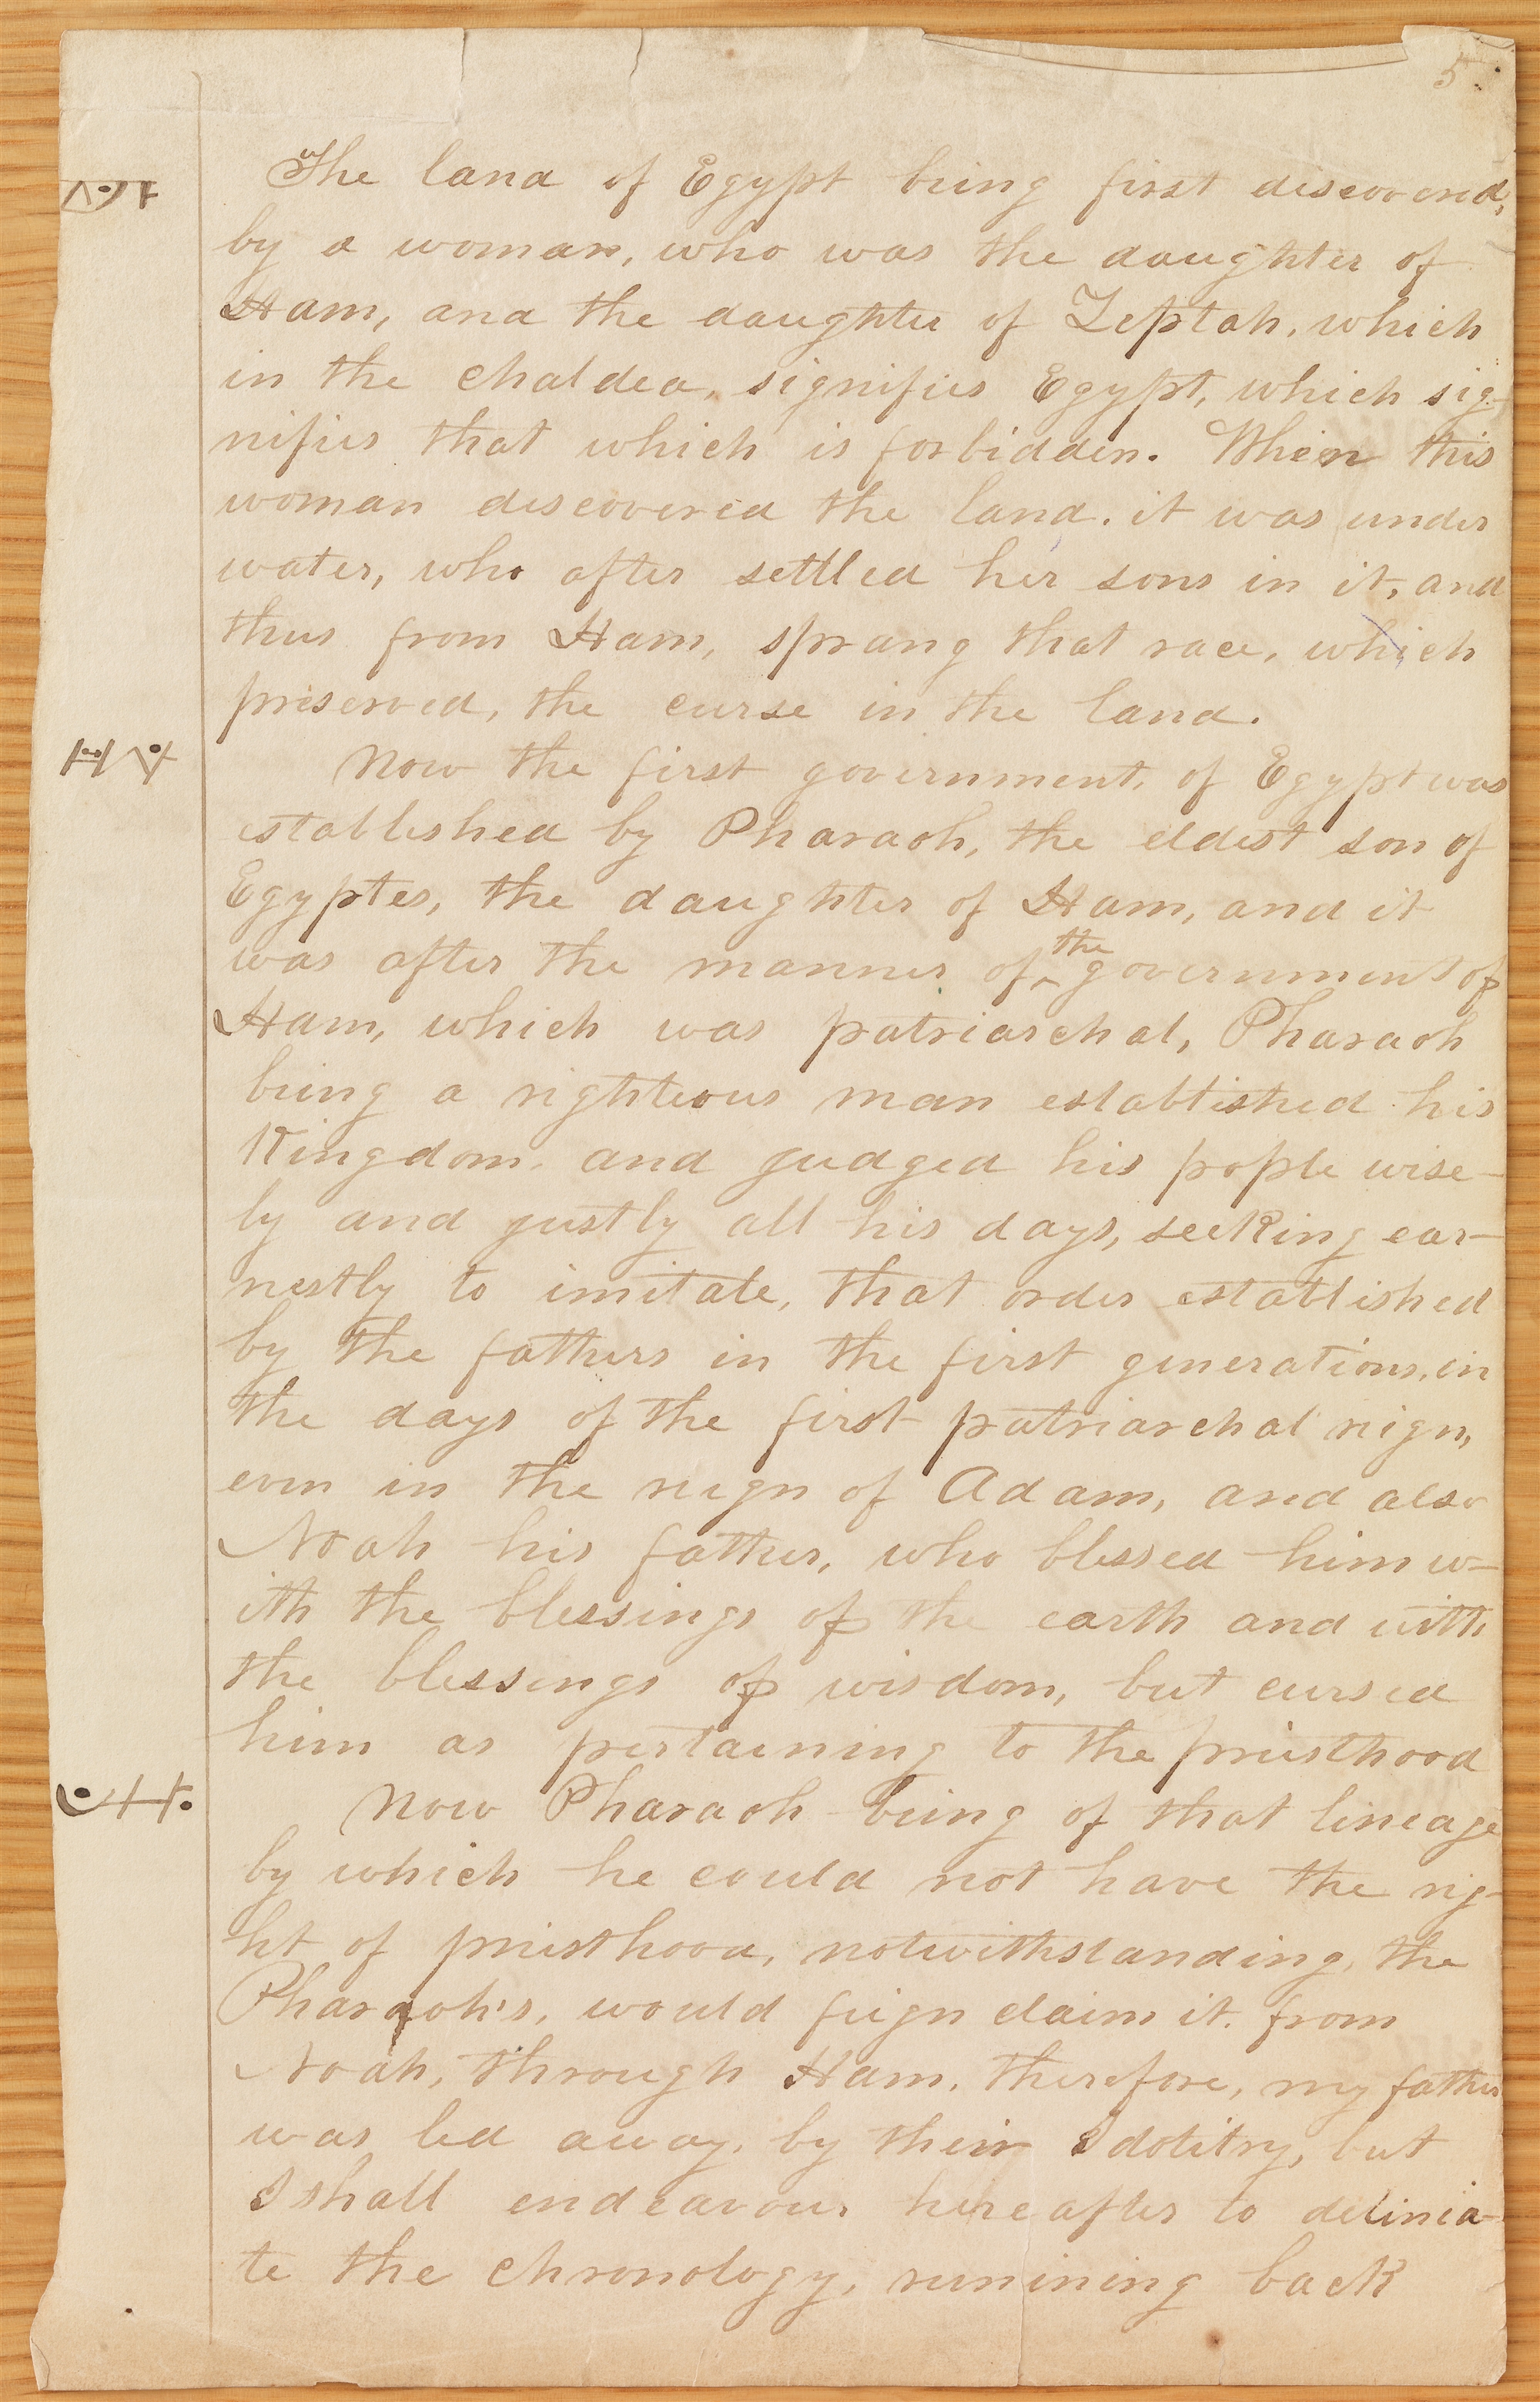 5
The land of Egypt being first discovered,
by a woman, who was the daughter of
Ham, and the daughter of Zeptah, which
in the chaldea, signifies Egypt, which sig-
nifies that which is forbidden. When this
woman discovered the land. it was under
water, who after settled her sons in it, and
thus from Ham, sprang that race, which
preserved, the curse in the land.
Now the first government, of Egypt was
established by Pharaoh, the eldest son of
Egyptes, the daughter of Ham, and it
was after the manner of the government of
Ham, which was patriarchal, Pharaoh
being a righteous man established his
Kingdom, and judged his pople wise-
ly and justly all his days, seeking ear-
nestly to imitate, that order established
by the fathers in the first generations, in
the days of the first patriarchal reign,
even in the reign of Adam, and also
Noah his father, who blessed him w-
ith the blessings of the earth and with
the blessings of wisdom, but cursed
him as pertaining to the priesthood
Now Pharaoh being of that lineage
by which he could not have the rig-
ht of priesthood, notwithstanding, the
Pharaoh's, would feign claim it. from
Noah, through Ham, therefore, my father
was led away, by their Idolitry, but
I shall endeavour hereafter to delinia-
te the chronology, runining back